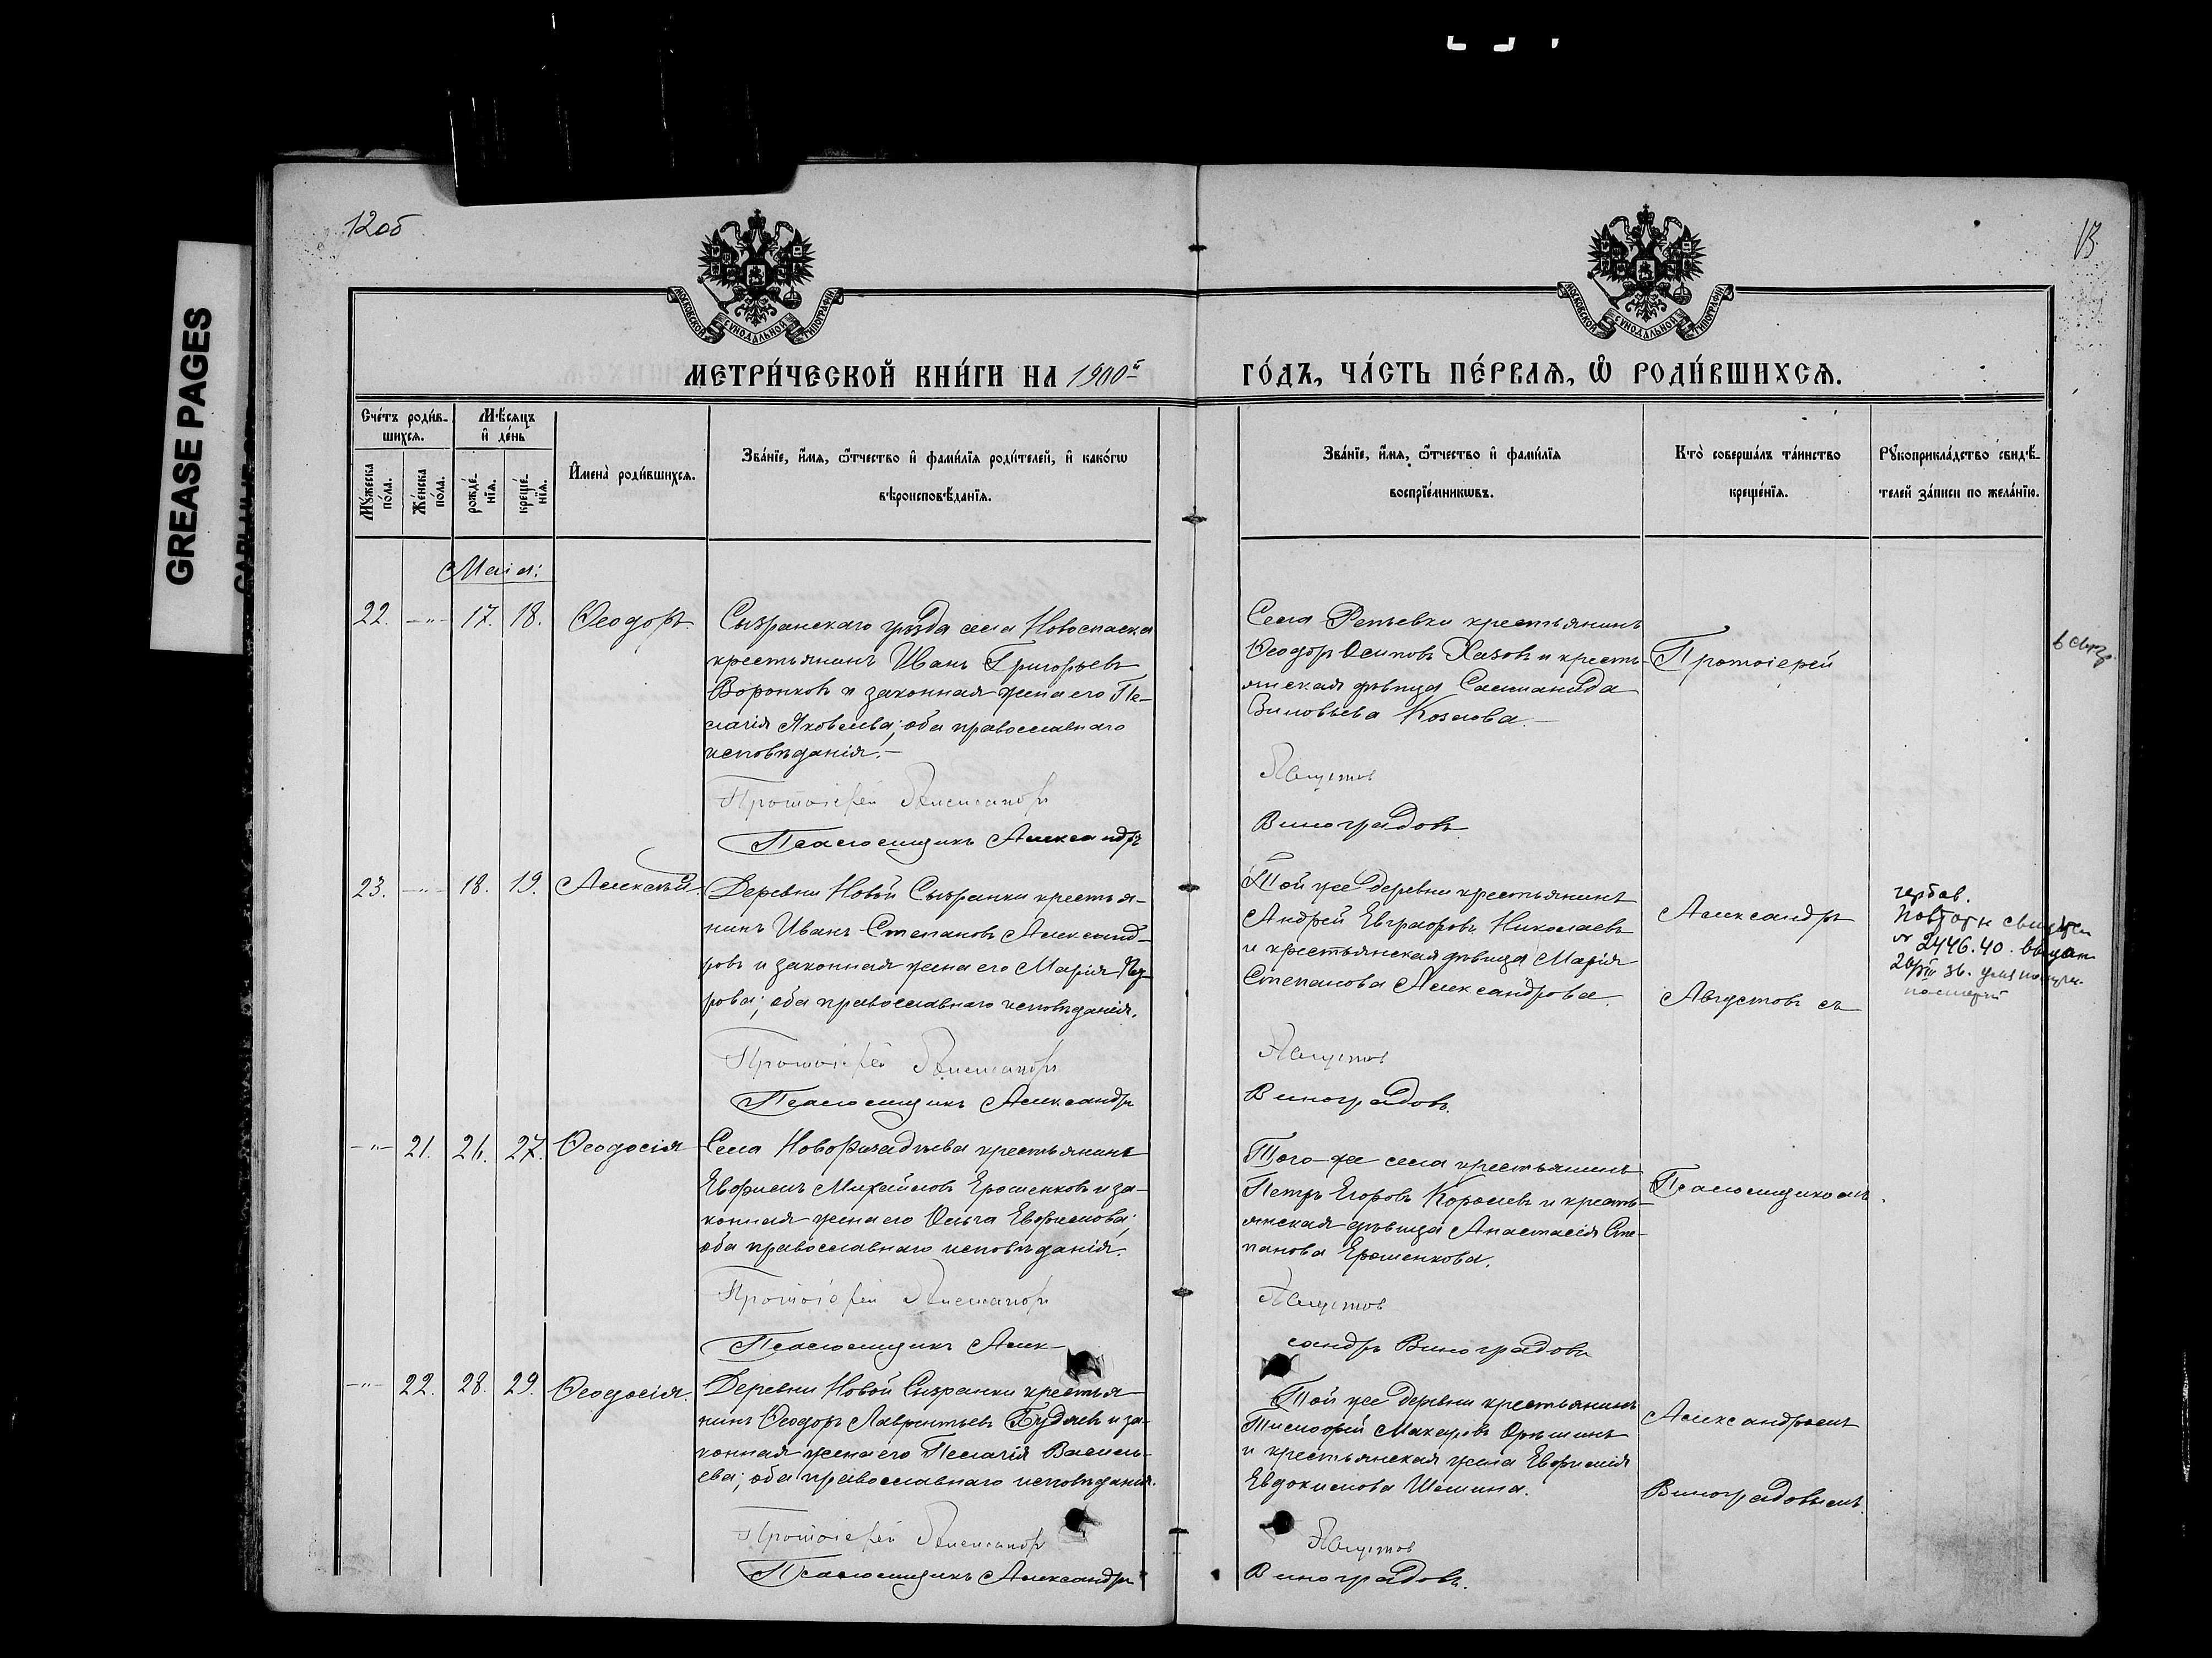 12об
13
GREASE PAGES
МОСКОВСКОЙ СУНОДАЛЬНОЙ ТИПОГРАФІИ
МОСКОВСКОЙ СУНОДАЛЬНОЙ ТИПОГРАФІИ
МЕТРИ́ЧЕСКОЙ КНИ́ГИ НА 1900й ГО́ДЪ, ЧА́СТЬ ПЕ́РВАѦ, Ѡ РОДИ́ВШИХСѦ.
Сче́тъ роди́в-
шихсѧ.
Мꙋ́жеска по́ла.
Же́нска по́ла.
Мѣ́сѧцъ
и҆ де́нь
рожде́-
нїѧ.
креще́-
нїѧ.
И҆мена̀ роди́вшихсѧ.
Зва́нїе, и҆́мѧ, ѻ҆́тчество и҆ фами́лїѧ роди́телей, и҆ како́гѡ
вѣроисповѣ́данїѧ.
Зва́нїе, и҆́мѧ, ѻ҆́тчество и҆ фами́лїѧ
воспрїе́мникѡвъ.
Кто̀ соверша́лъ та́инство
креще́нїѧ.
Рꙋкоприкла́дство свидѣ́-
телей за́писи по жела́нїю.
Маія:
22. —"— 17. 18. Ѳеодоръ.
Сызранскаго уѣзда села Новоспаска
крестьянинъ Иванъ Григорьевъ
Воронковъ и законная жена его Пе-
лагія Яковлева; оба православнаго
исповѣданія.—
Протоіерей Александръ
Псаломщикъ Александръ
Села Репьевки крестьянинъ
Ѳеодоръ Осиповъ Хазовъ и кресть-
янская дѣвица Соломанида
Зиновьева Козлова.—
Августов
Виноградовъ.
Протоіерей
23. —"— 18. 19. Алексѣй.
Деревни Новой Сызранки крестья-
нинъ Иванъ Степановъ Александ-
ровъ и законная жена его Марія
рова; оба православнаго исповѣданія.
Протоіерей Александръ
Псаломщикъ Александръ
Той же деревни крестьянинъ
Андрей Евграфовъ Николаевъ
и крестьянская дѣвица Марія
Степанова Александрова.
Августов
Виноградовъ.
Александръ
Августовъ съ
гербов.
2446.40.
—"— 21. 26. 27. Ѳеодосія
Села Новорачадѣева крестьянинъ
Евфимъ Михайловъ Ерошенковъ и за-
конная жена его Ольга Евфимова;
оба православнаго исповѣданія.
Протоіерей Александръ
Псаломщикъ Алек-
Того-же села крестьянинъ
Петръ Егоровъ Королевъ и кресть-
янская дѣвица Анастасія Сте-
панова Ерошенкова.
Августов
сандръ Виноградовъ
Псаломщикомъ
—"— 22. 28. 29. Ѳеодосія.
Деревни Новой Сызранки крестья-
нинъ Ѳеодоръ Лаврентьевъ Будяевъ и за-
конная жена его Пелагія Василь-
ева; оба православнаго исповѣданія.
Протоіерей Александръ
Псаломщикъ Александръ
Той же деревни крестьянинъ
Тимофей Макаровъ Орѣшинъ
и крестьянская жена Евфимія
Евдокимова Шошина.
Августов
Виноградовъ.
Александромъ
Виноградовымъ.